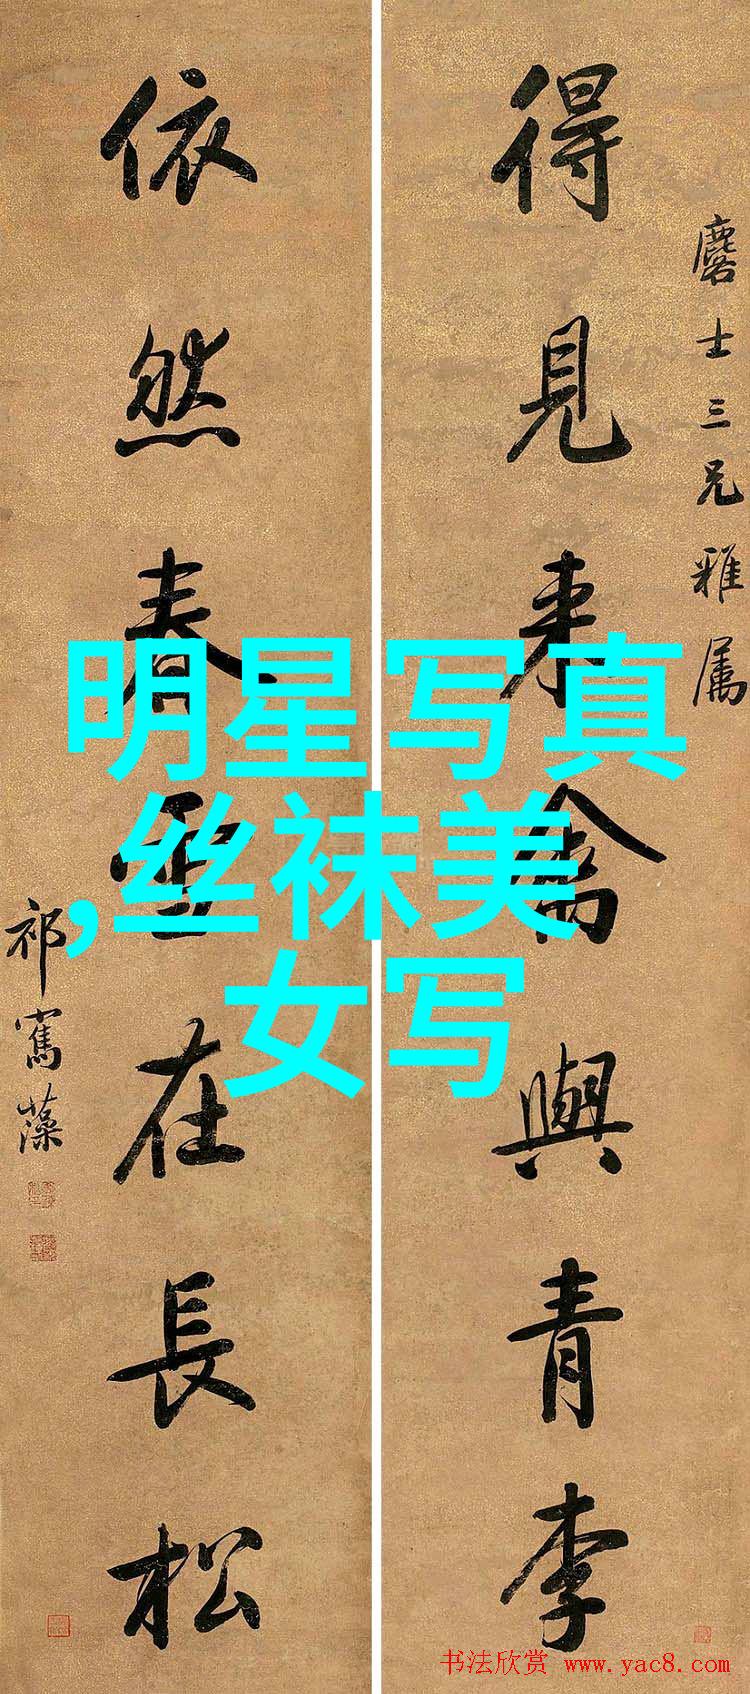 得見來禽與青李
麐士三兄雅屬
依然春雪在長松
祁寯藻
明星写真
,丝袜美
女写
书法欣赏 www.yac8.com